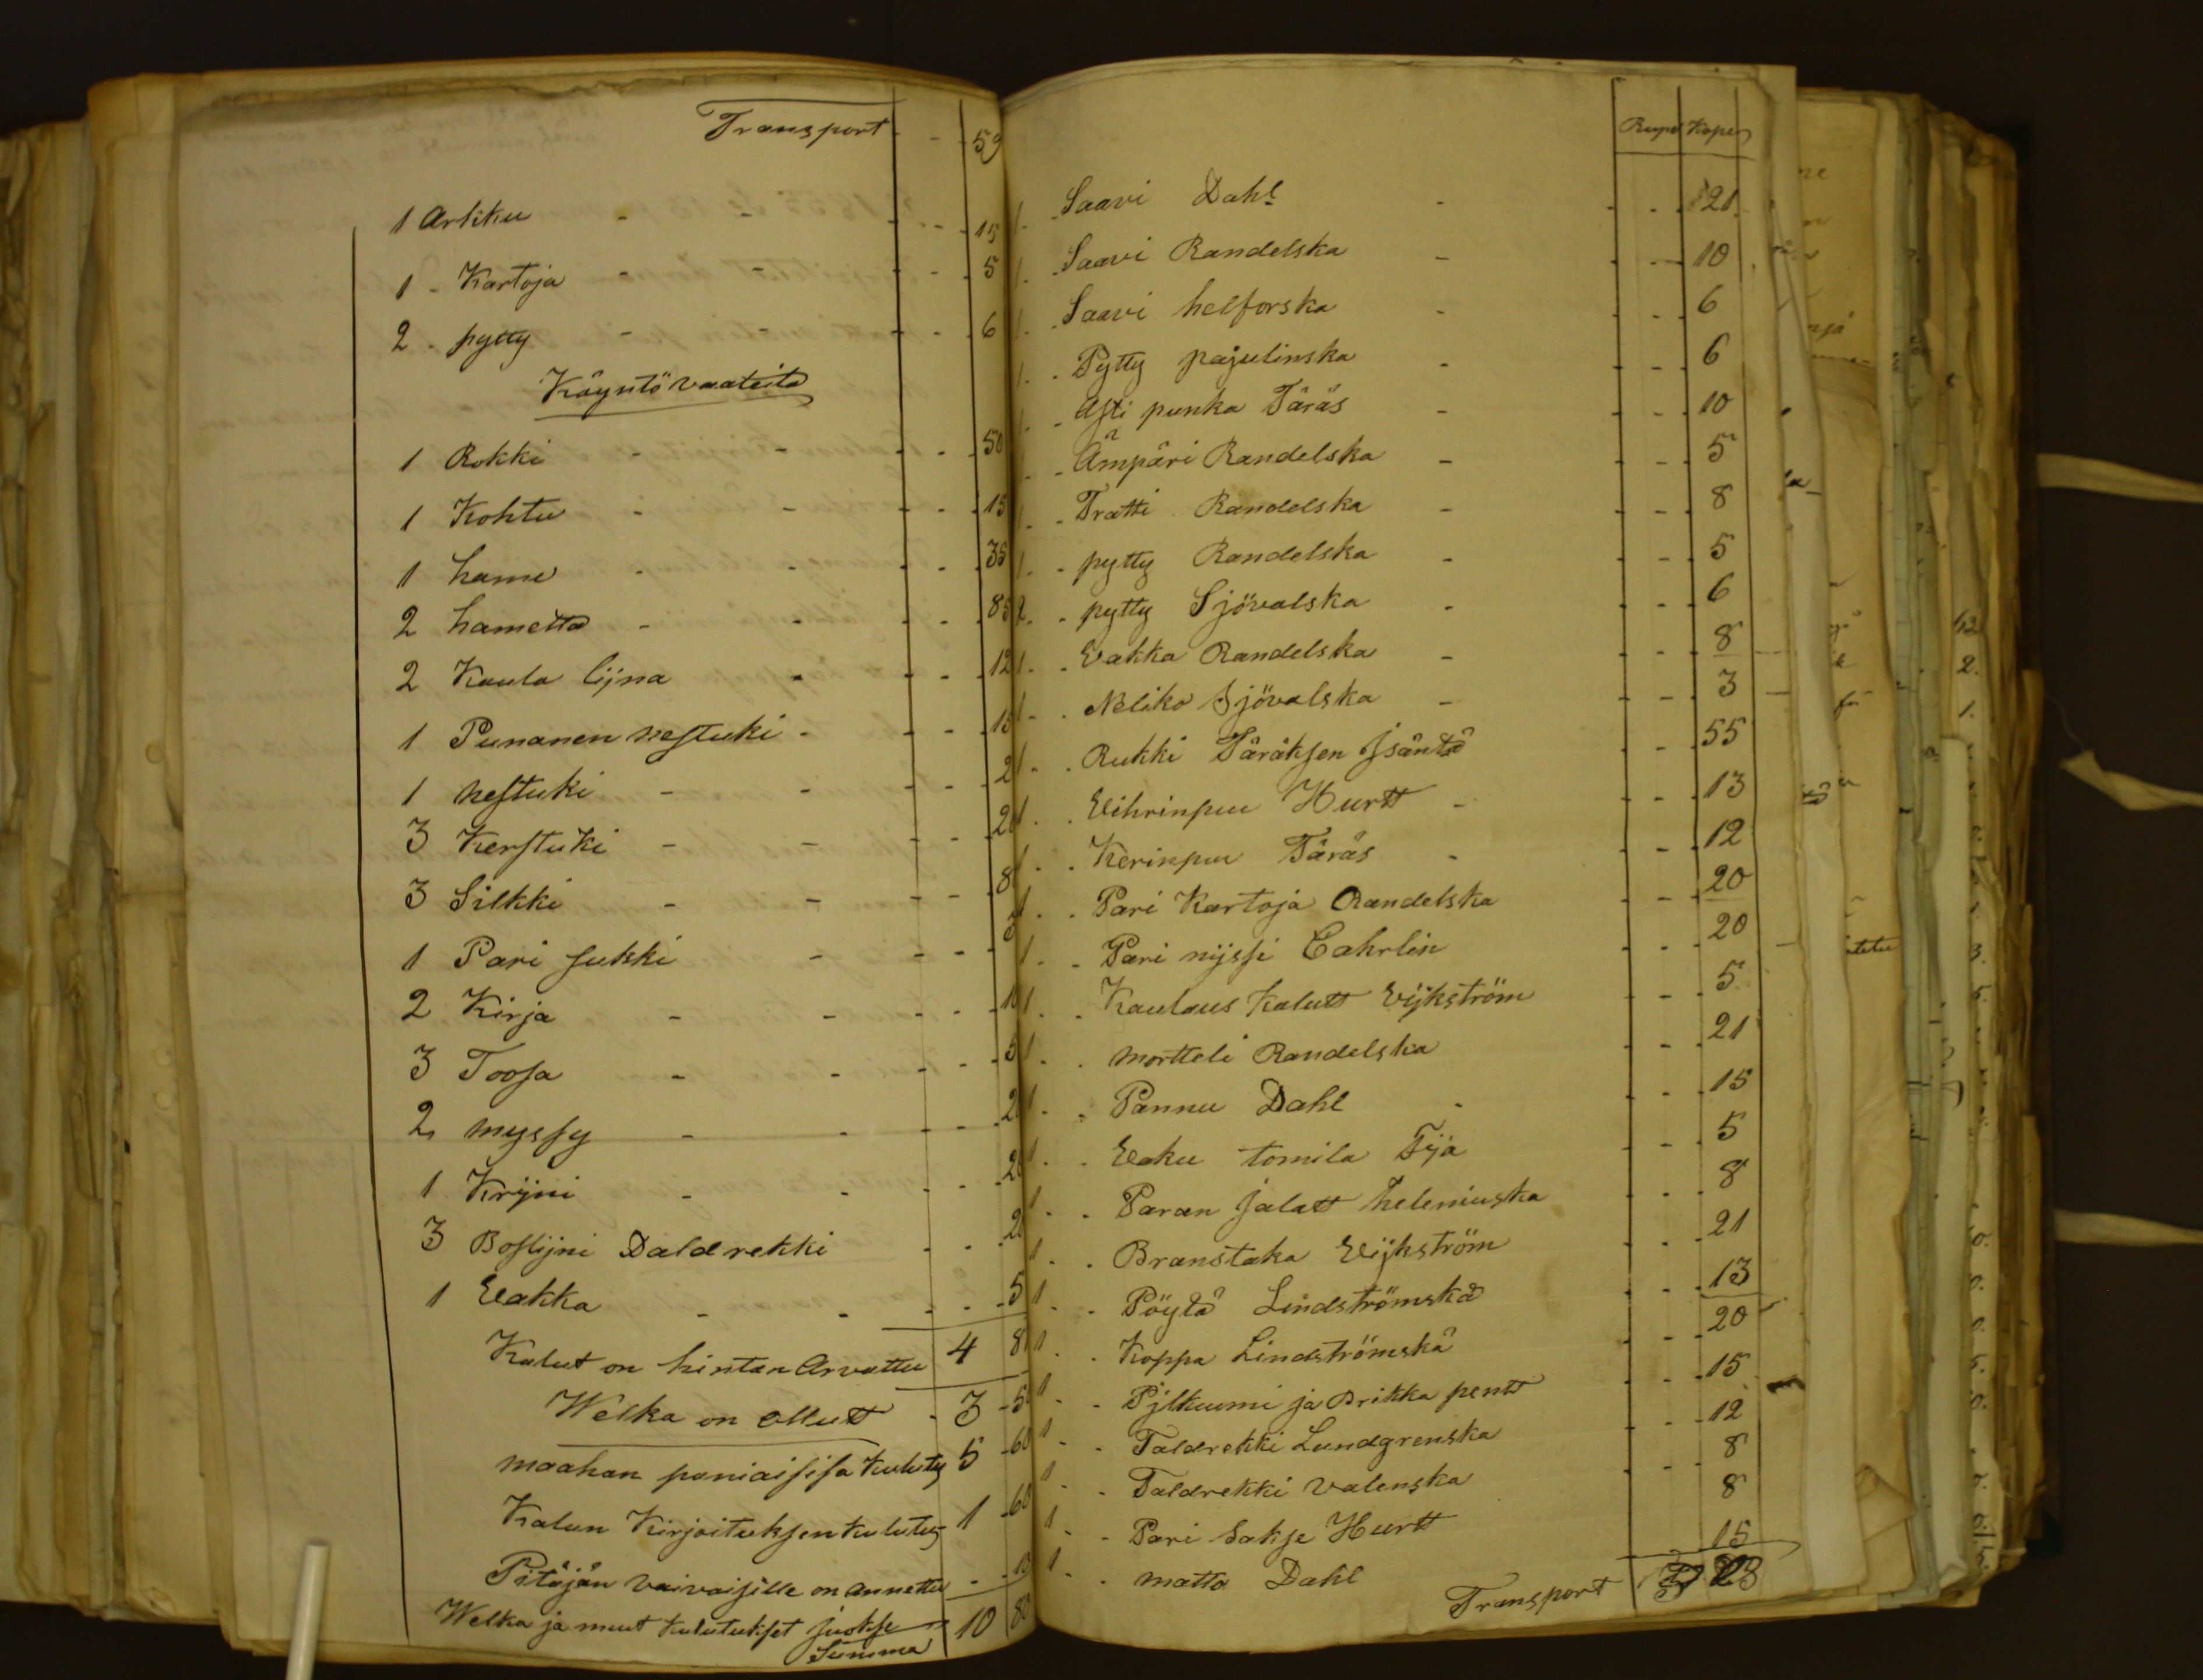 Transport - 59
1 Arkku - - - 15
1 - Kartoja - - - 5
2 - pytty - - - 6
Käyntö vaateita
1 Rokki - - - 50
1 Kohtu - - - 15
1 hame - - - 35
2 hametta - - - 85
2 Kaula lijna - - - 12
1 Punanen nestuki - - - 15
1 nestuki - - - 2
3 Kerstuki - - - 20
3 Silkki - - - 8
1 Pari sukki - - -
2 Kirja - - - 10
3 Toosa - - - 5
2 myssy - - - 2
1 Krijni - - - 20
3 Boslijni Daldrekki - - 2
1 Vakka - - - 5
Kalut on hintan Arvattu 4 8
Welka on ollutt - 3 - 5
maahan paniaisisa kulutus 5 - 60
Kalun Kirjoituksen kulutus 1 - 60
Pitäjän vaivaisille on annettu - - 13
Welka ja muut kulutukset juokse Summa 10 80
Rupl Kope
1 - Saavi Dahl - - - 21
1 - Saavi Randelska - - - 10
1 - Saavi helforska - - - 6
1 - Pytty pajulinska - - - 6
1 - Asti punka Täräs - - - 10
- Ämpäri Randelska - - - 5
1 - Tratti Randelska - - - 8
1 - pytty Randelska - - - 5
2 - pytty Sjövalska - - - 6
1 - Vakka Randelska - - - 8
1 - Neliko Sjövalska - - - 3
1 - Rukki Täräksen Isäntä - - 55
1 - Vihrinpuu Hurtt - - - 13
1 - Kerinpuu Täräs - - - 12
1 - Pari Kartoja Randelska - - 20
1 - Pari nijssi Cahrlin - - 20
1 - Kaulaus kalutt Vijkström - - 5
1 - mortteli Randelska - - 21
1 - Pannu Dahl - - - 15
1 - Vaku tomila Tijä - - 5
1 - Paran jalatt heleniuska - - 8
1 - Branstaka Vijkström - - 21
1 - Pöytä Lindströmskä - - 13
1 - Koppa Lindströmskä - - 20
1 - Pjlkuumi ja Brikka pentt - - 15
1 - Taldrekki Lundgrenska - - 12
1 - Taldrekki valenska - - 8
1 - Pari sakse Hurtt 8
1 - matto Dahl 15
Transport